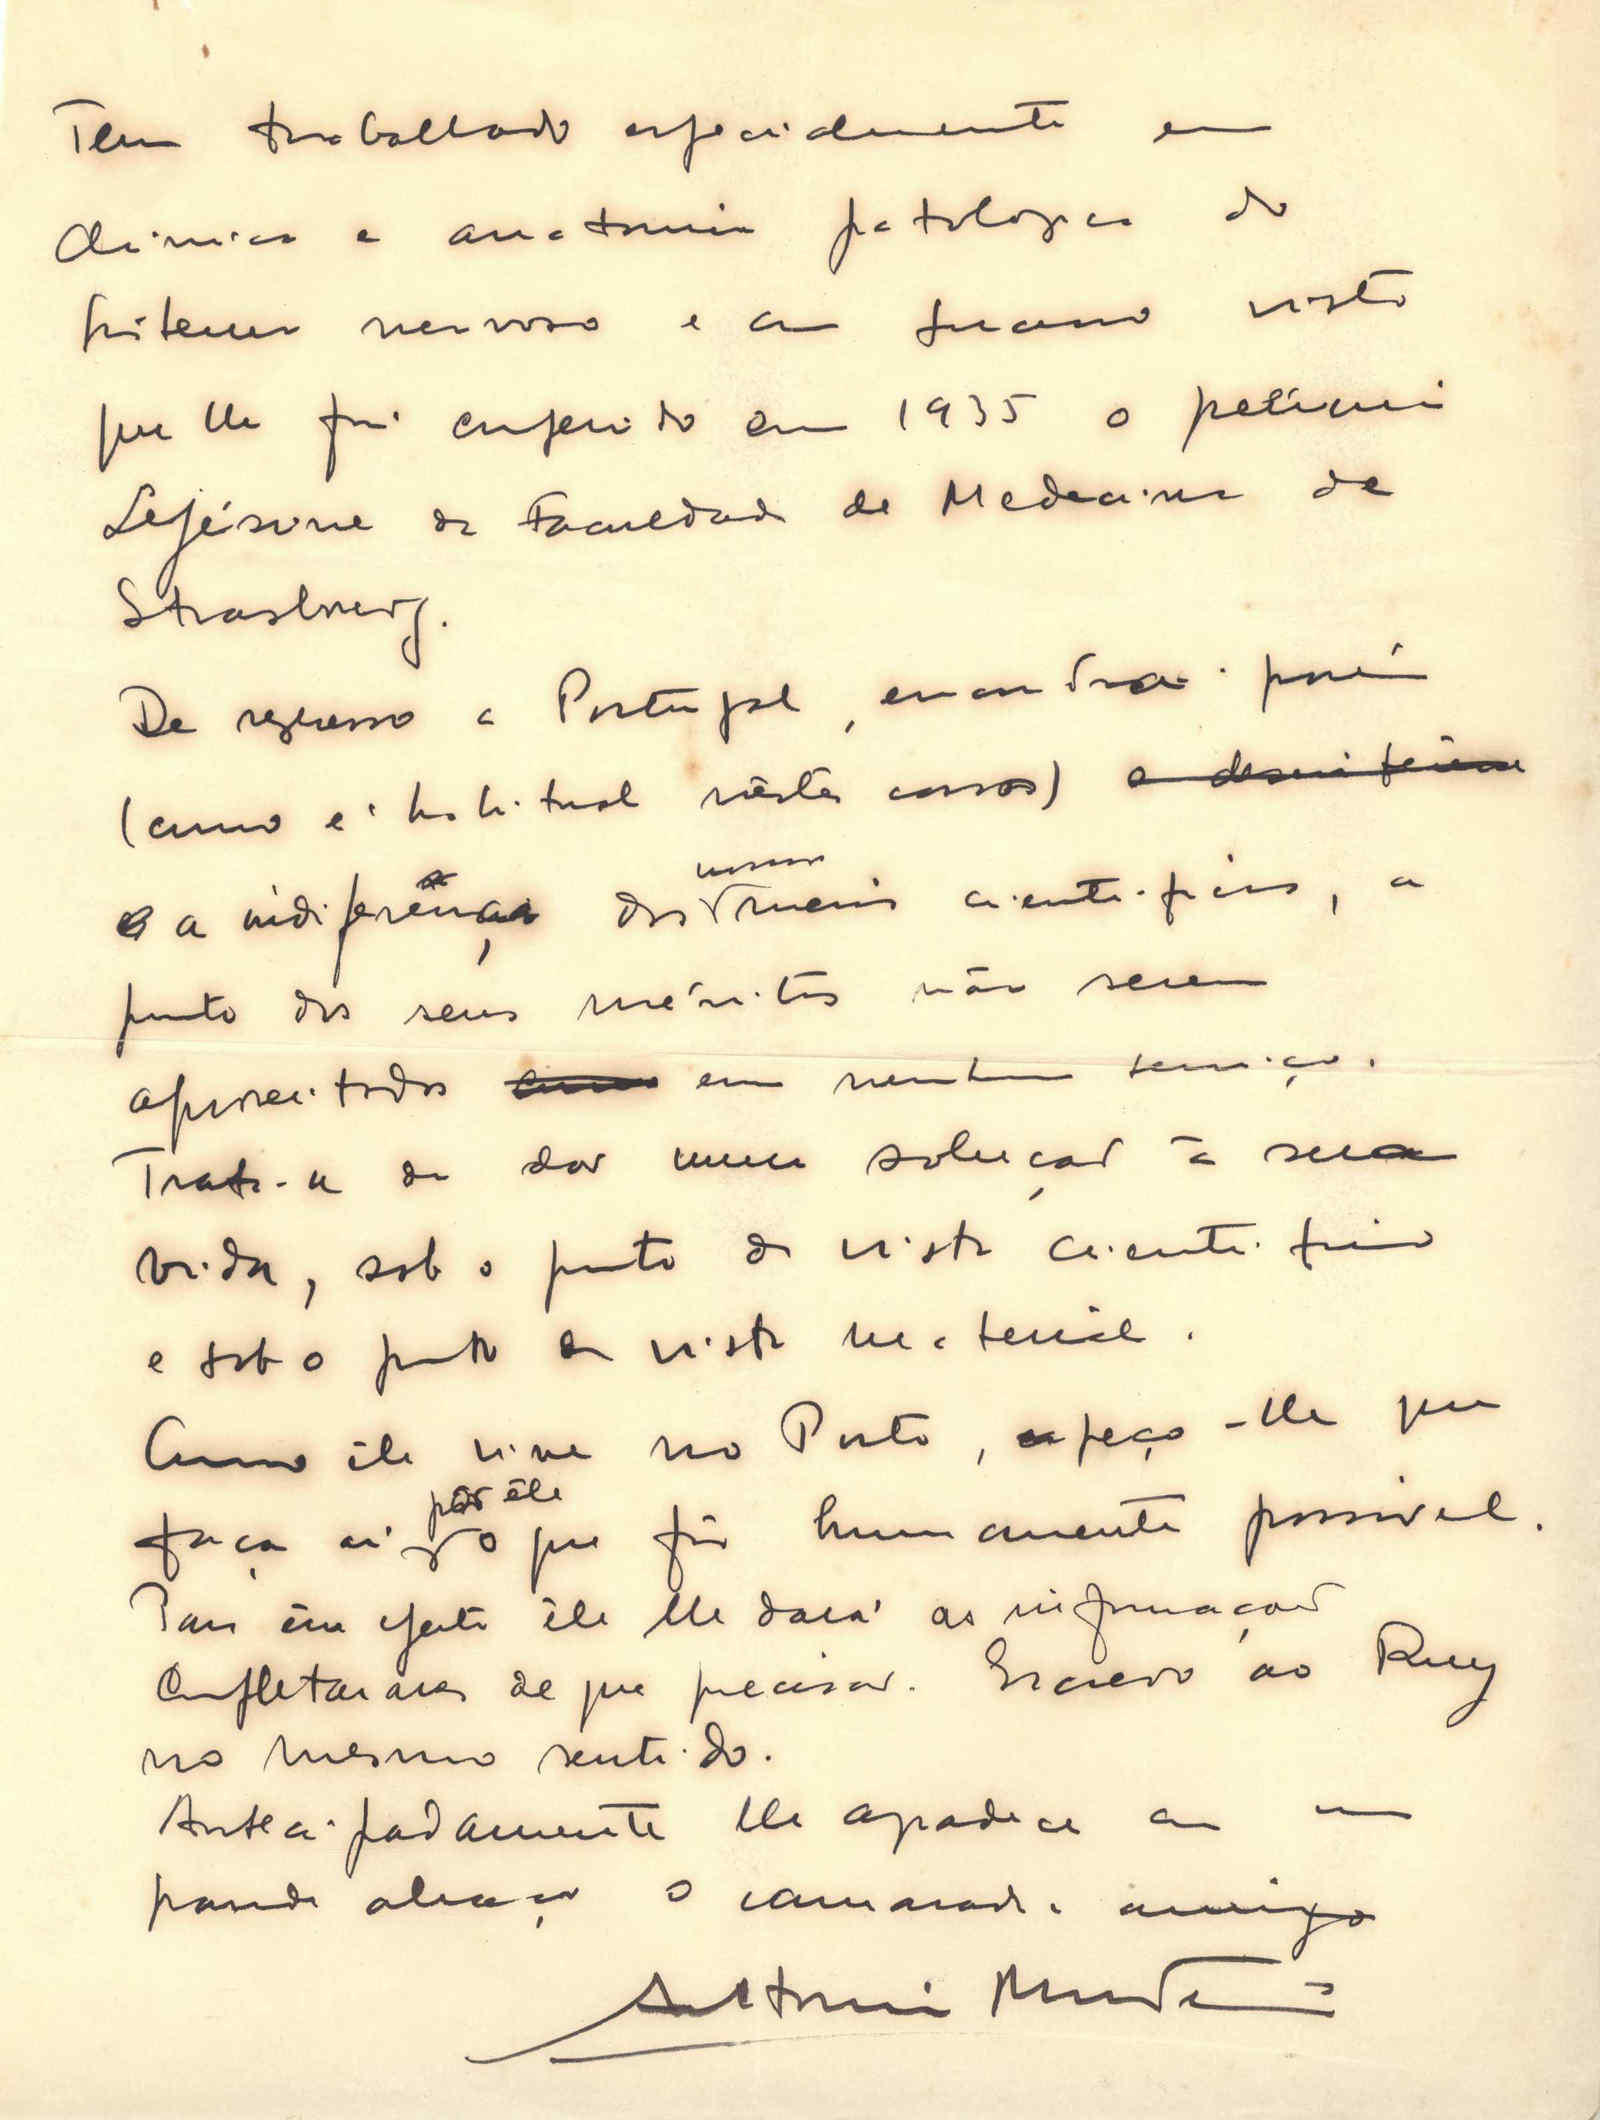 Tem trabalhado especialmente em
clinica e anatomia patologica do
sistema nervoso e
que lhe foi conferido em 1935 o prémio
da Faculdade de Medecina de
Strasbourg.
De regresso a Portugal, encontrou porém
(como é habitual nêstes casos)
a indiferença dos nossos meios cientificos, a
ponto dos seus méritos não serem
aproveitados em nenhum serviço.
Trata-se de dar uma solução à sua
vida, sob o ponto de vista cientifico
e sob o ponto de vista material.
Como êle vive no Porto, peço-lhe que
faça aí por êle o que fôr humanamente possivel.
êle lhe dará as informações
complementares de que precisar. Escrevo ao Ruy
no mesmo sentido.
Antecipadamente lhe agradece com um
grande abraço o camarada e amigo